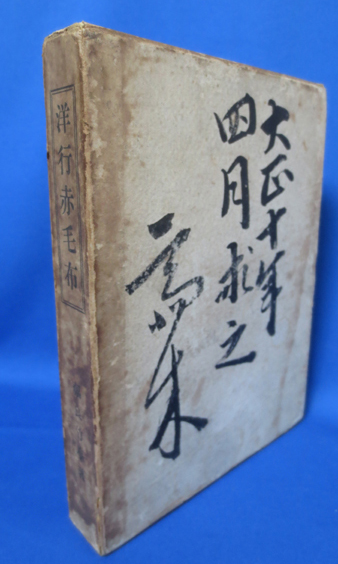 洋行赤毛布
大正十年
四月求之